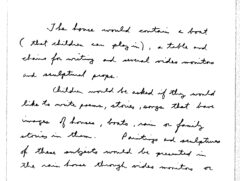 The house would contain a boat
( that children can play in), a table and
chairs for writing and several video monitors
and sculptural props.
Children would be asked if they would
like to write poems, stories, songs that have
images of houses, boats, rain or family
stories in them. Paintings and sculptures
of these subjects would be presented in
the rain house through video monitors or